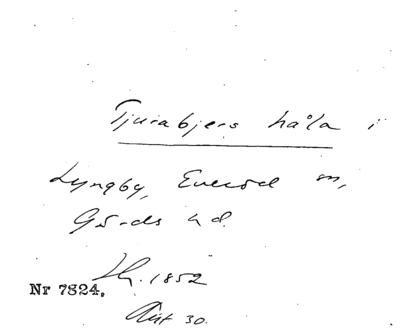 Tjurabjers håla i
Lyngby, Everöd sn,
Gärds hd.
Lh. 1852
Nr 7824.
Akt 30.